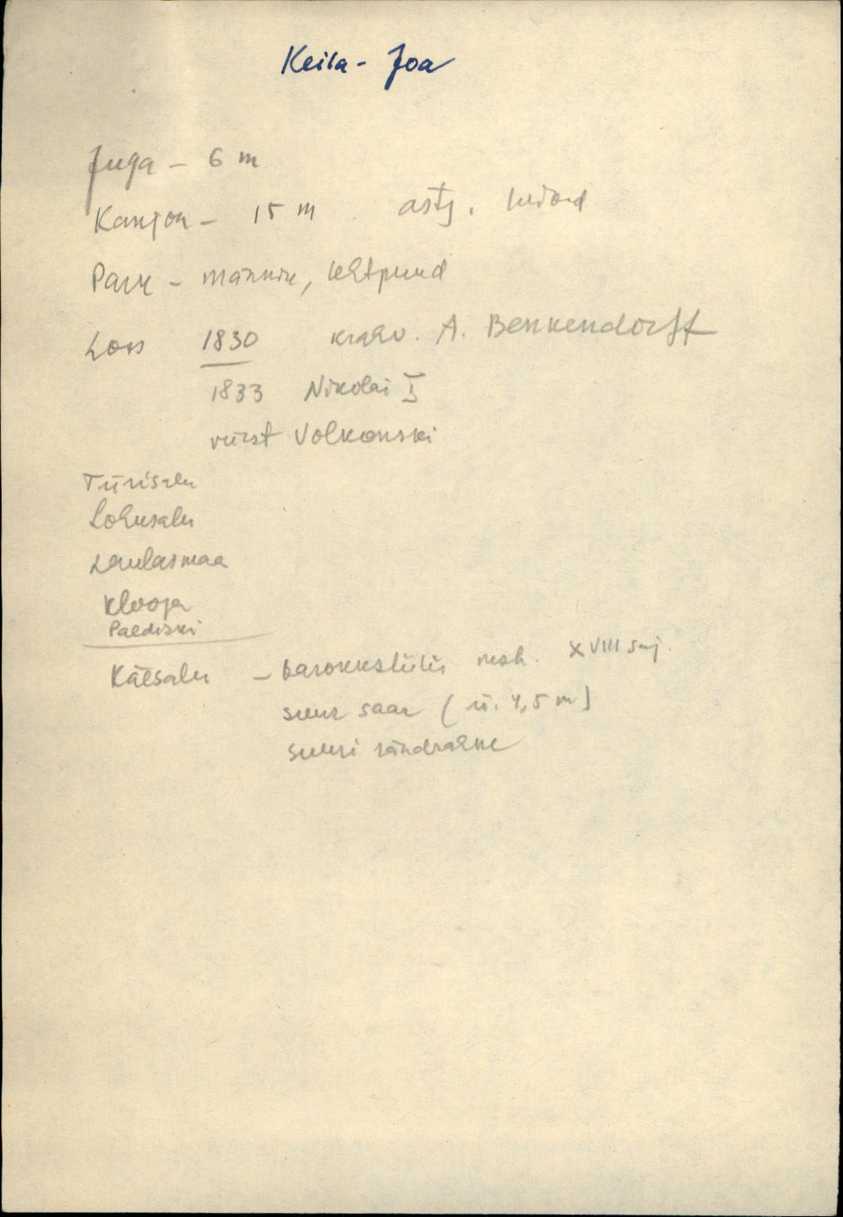 Keila-Joa
Juga - 6 m
Kanjon - 15 m astj.
Park - männik, lehtpuud
Loss 1830 krahv. A. Benkendorff
1833 Nikolai I
vürst Volkonski
Türisalu
Lohusalu
Laulasmaa
Klooga
Paldiski
Käesalu - barokkstiilis mõh. XVIII saj.
suur saar (ü. 4,5 m)
suuri rändrahne